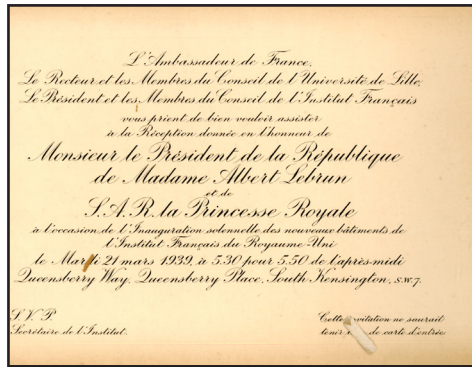 L'Ambassadeur de France,
Le Recteur et les Membres du Conseil de l'Université de Lille,
Le Président et les Membres du Conseil de l'Institut Français
vous prient de bien vouloir assister
à la Réception donnée en l'honneur de
Monsieur le Président de la République
de Madame Albert Lebrun
et de
S.A.R. la Princesse Royale
à l'occasion de l'Inauguration solennelle des nouveaux bâtiments de
l'Institut Français du Royaume-Uni
le Mardi 21 mars 1939, à 5.30 pour 5.50 de l'après-midi
Queensberry Way, Queensberry Place, South Kensington, S.W.7.
S.V.P.
Secrétaire de l'Institut.
Cette invitation ne saurait
tenir de carte d'entrée